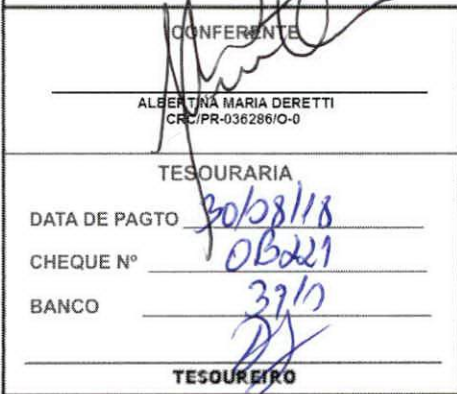 CONFERENTE
ALBERTINA MARIA DERETTI
CRC/PR-036286/O-0
TESOURARIA
DATA DE PAGTO 30/08/18
CHEQUE Nº OB221
BANCO
TESOUREIRO